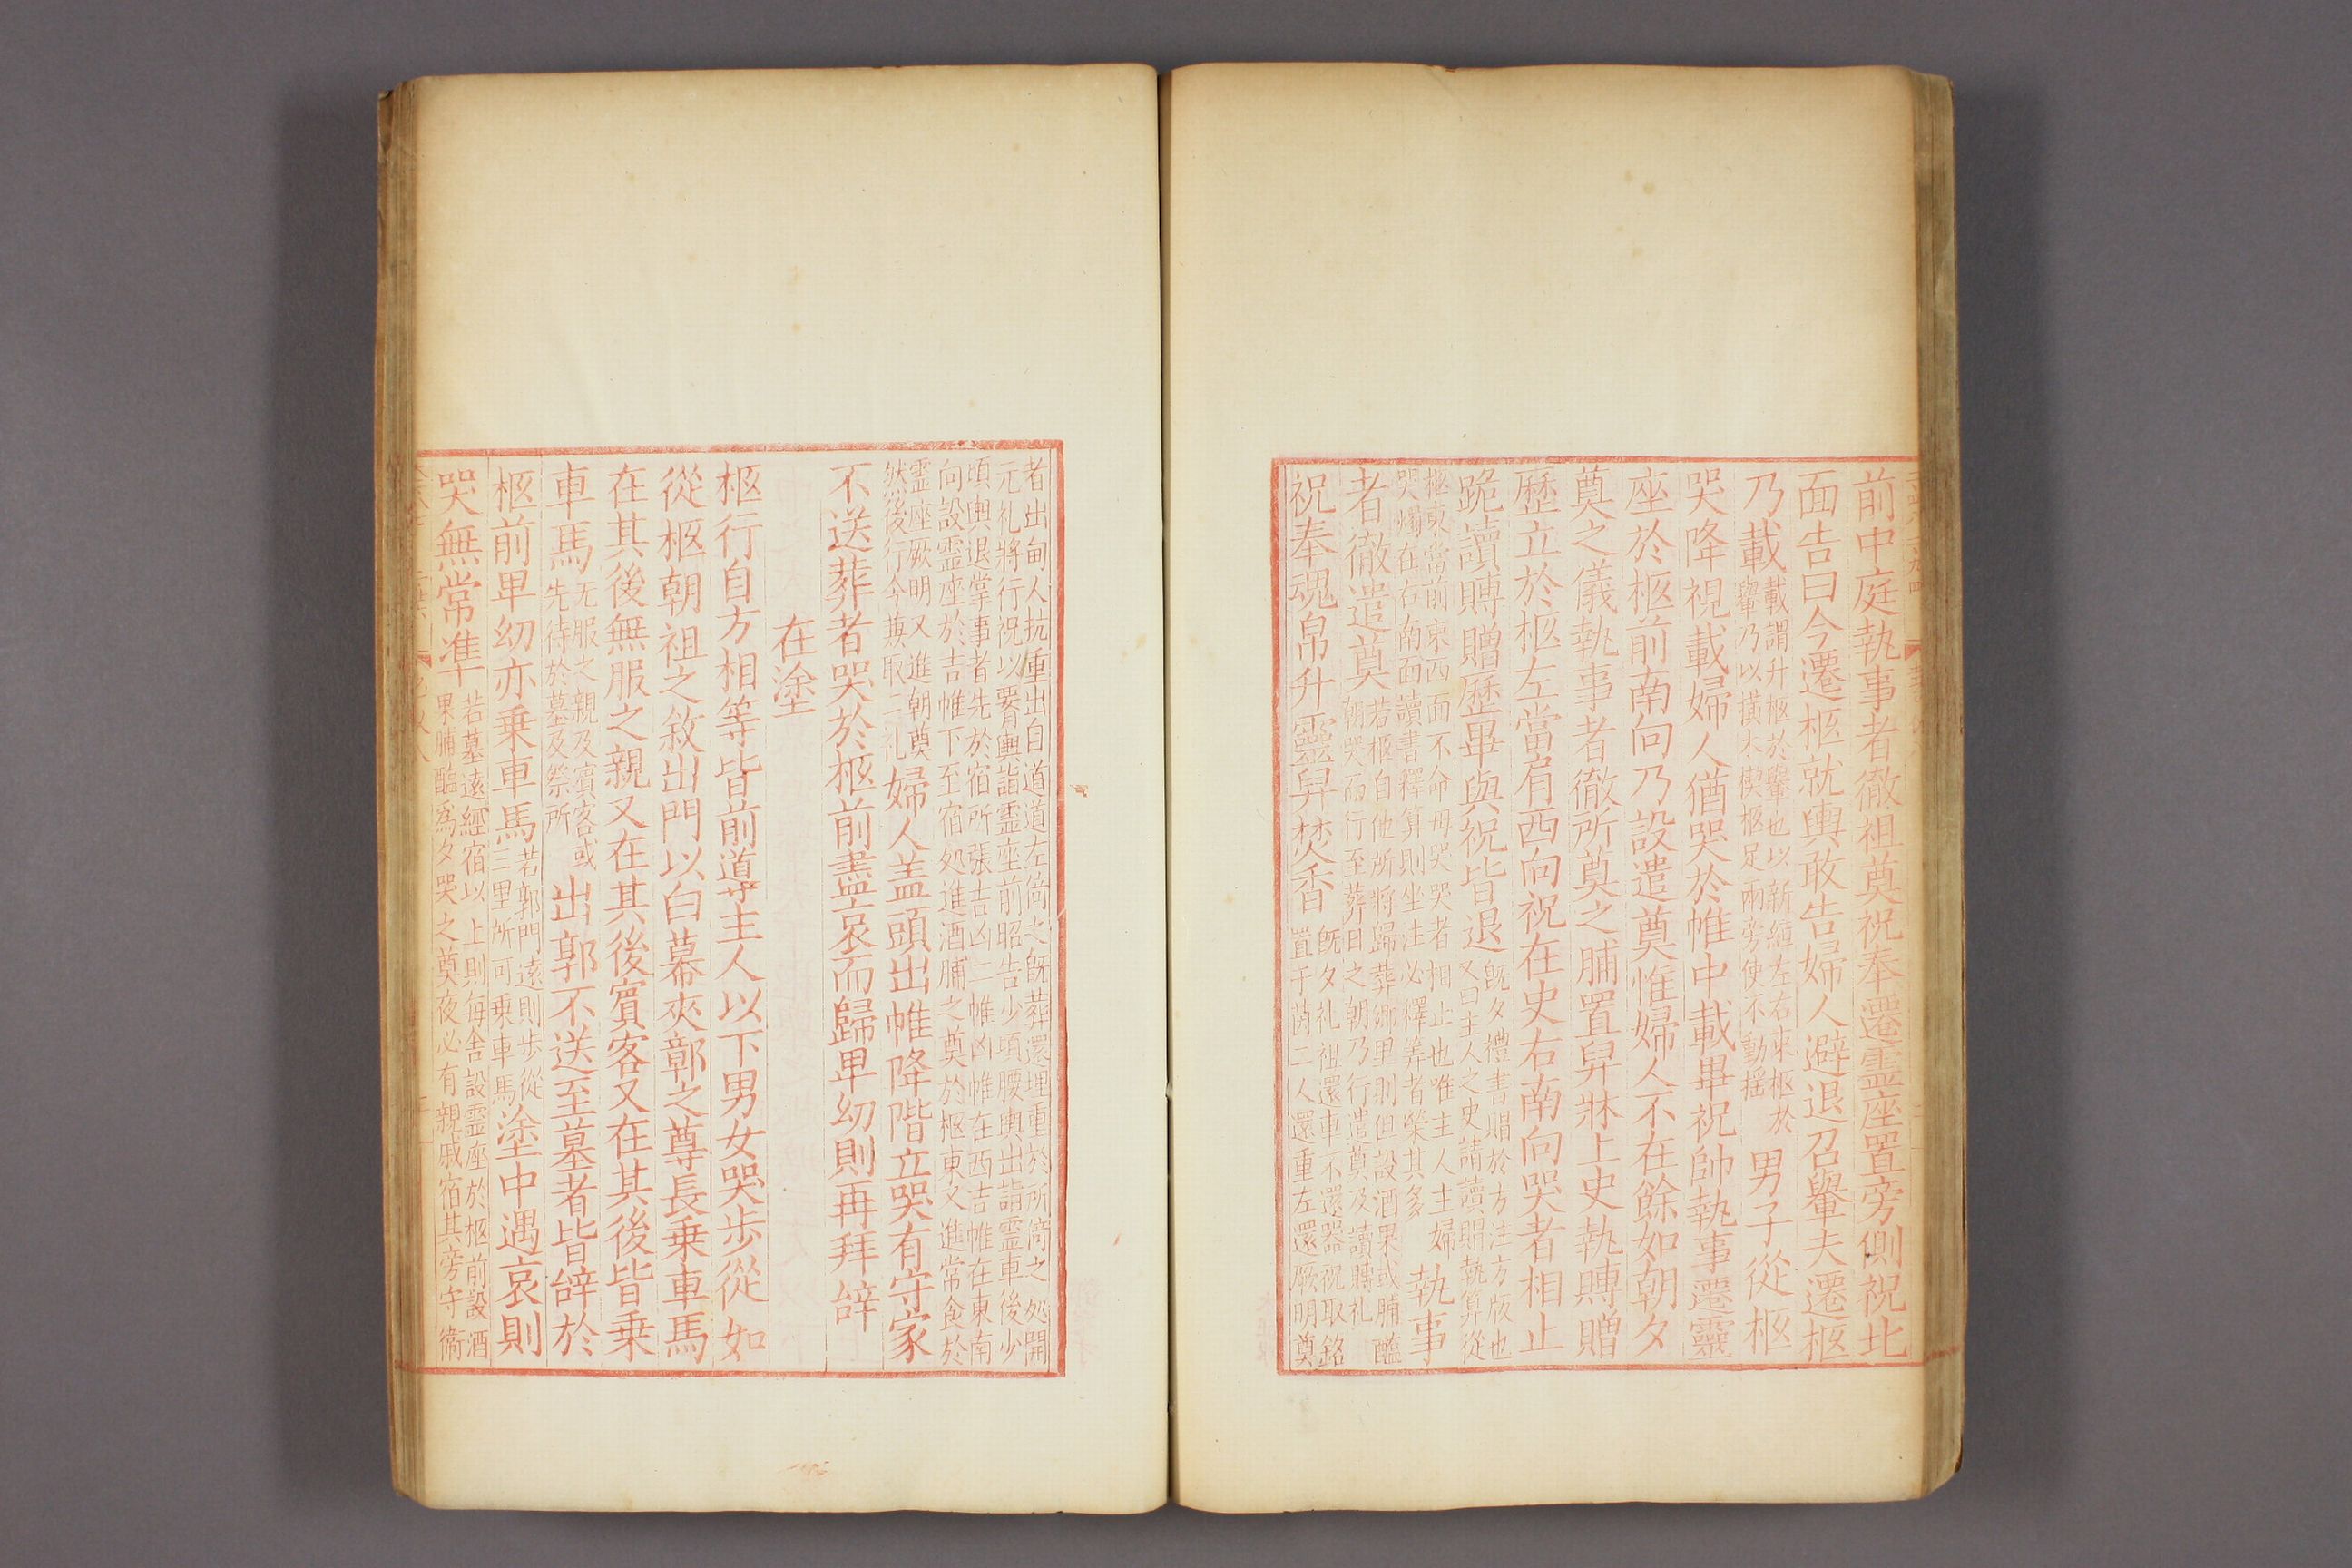 前中庭執事者徹祖奠祝奉遷霊座置旁側祝北
面告曰今遷柩就輿敢告婦人避退召轝夫遷柩
乃載
載謂升柩於轝也以新絙左右束柩於
轝乃以橫木楔柩足兩旁使不動摇
男子從柩
哭降視載婦人猶哭於帷中載畢祝帥執事遷靈
座於柩前南向乃設遣奠惟婦人不在餘如朝夕
奠之儀執事者徹所奠之脯置舁牀上史執賻贈
歷立於柩左當肩西向祝在史右南向哭者相止
跪讀賻贈歷畢與祝皆退
旣夕禮書賵於方注方版也
又曰主人之史請讀賵執算從
柩東當前束西面不命毋哭哭者相止也唯主人主婦
哭燭在右南面讀書釋算則坐注必釋筭者榮其多
執事
者徹遣奠
若柩自他所將歸葬鄉里則但設酒果或脯醢
朝哭而行至葬日之朝乃行遣奠及讀賻礼
祝奉魂帛升靈舁焚香
旣夕礼祖還車不還器祝取銘
置于茵二人還重左還厥明奠
者出甸人抗重出自道道左倚之旣葬還埋重於所倚之処開
元礼將行祝以要輿詣霊座前昭告少頃腰輿出詣霊車後少
頃輿退掌事者先於宿所張吉凶二帷凶帷在西吉帷在東南
向設霊座於吉帷下至宿処進酒脯之奠於柩東又進常食於
霊座厥明又進朝奠
然後行今兼取二礼
婦人盖頭出帷降階立哭有守家
不送葬者哭於柩前盡哀而歸卑幼則再拜辝
在塗
柩行自方相等皆前導主人以下男女哭步從如
從柩朝祖之敘出門以白幕夾鄣之尊長乗車馬
在其後無服之親又在其後賓客又在其後皆乗
車馬
无服之親及賓客或
先待於墓及祭所
出郭不送至墓者皆辝於
柩前卑幼亦乗車馬
若郭門遠則步從
三里所可乗車馬
塗中遇哀則
哭無常準
若墓遠經宿以上則每舍設霊座於柩前設酒
果脯醢為夕哭之奠夜必有親戚宿其旁守衛